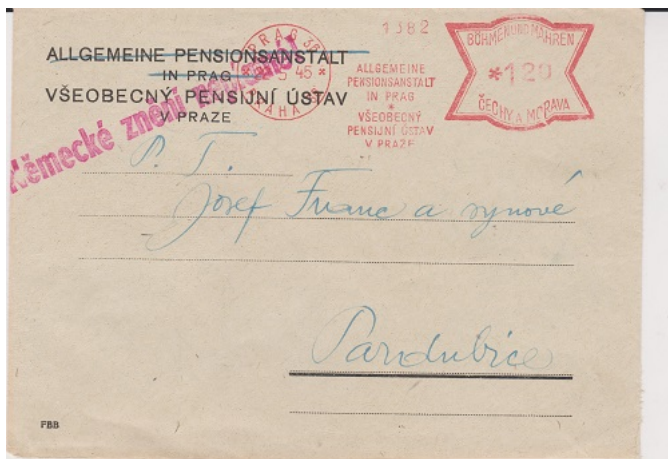 ALLGEMEINE PENSIONSANSTALT
IN PRAG
VŠEOBECNÝ PENSIJNÍ ÚSTAV
V PRAZE
Německé znění neplatí!
PRAG 36
5 45
PRAHA
1382
ALLGEMEINE
PENSIONSANSTALT
IN PRAG
*
VŠEOBECNÝ
PENSIJNÍ ÚSTAV
V PRAZE
BÖHMEN UND MÄHREN
*120
ČECHY A MORAVA
P. T.
Josef Franc a synové
Pardubice
FBB